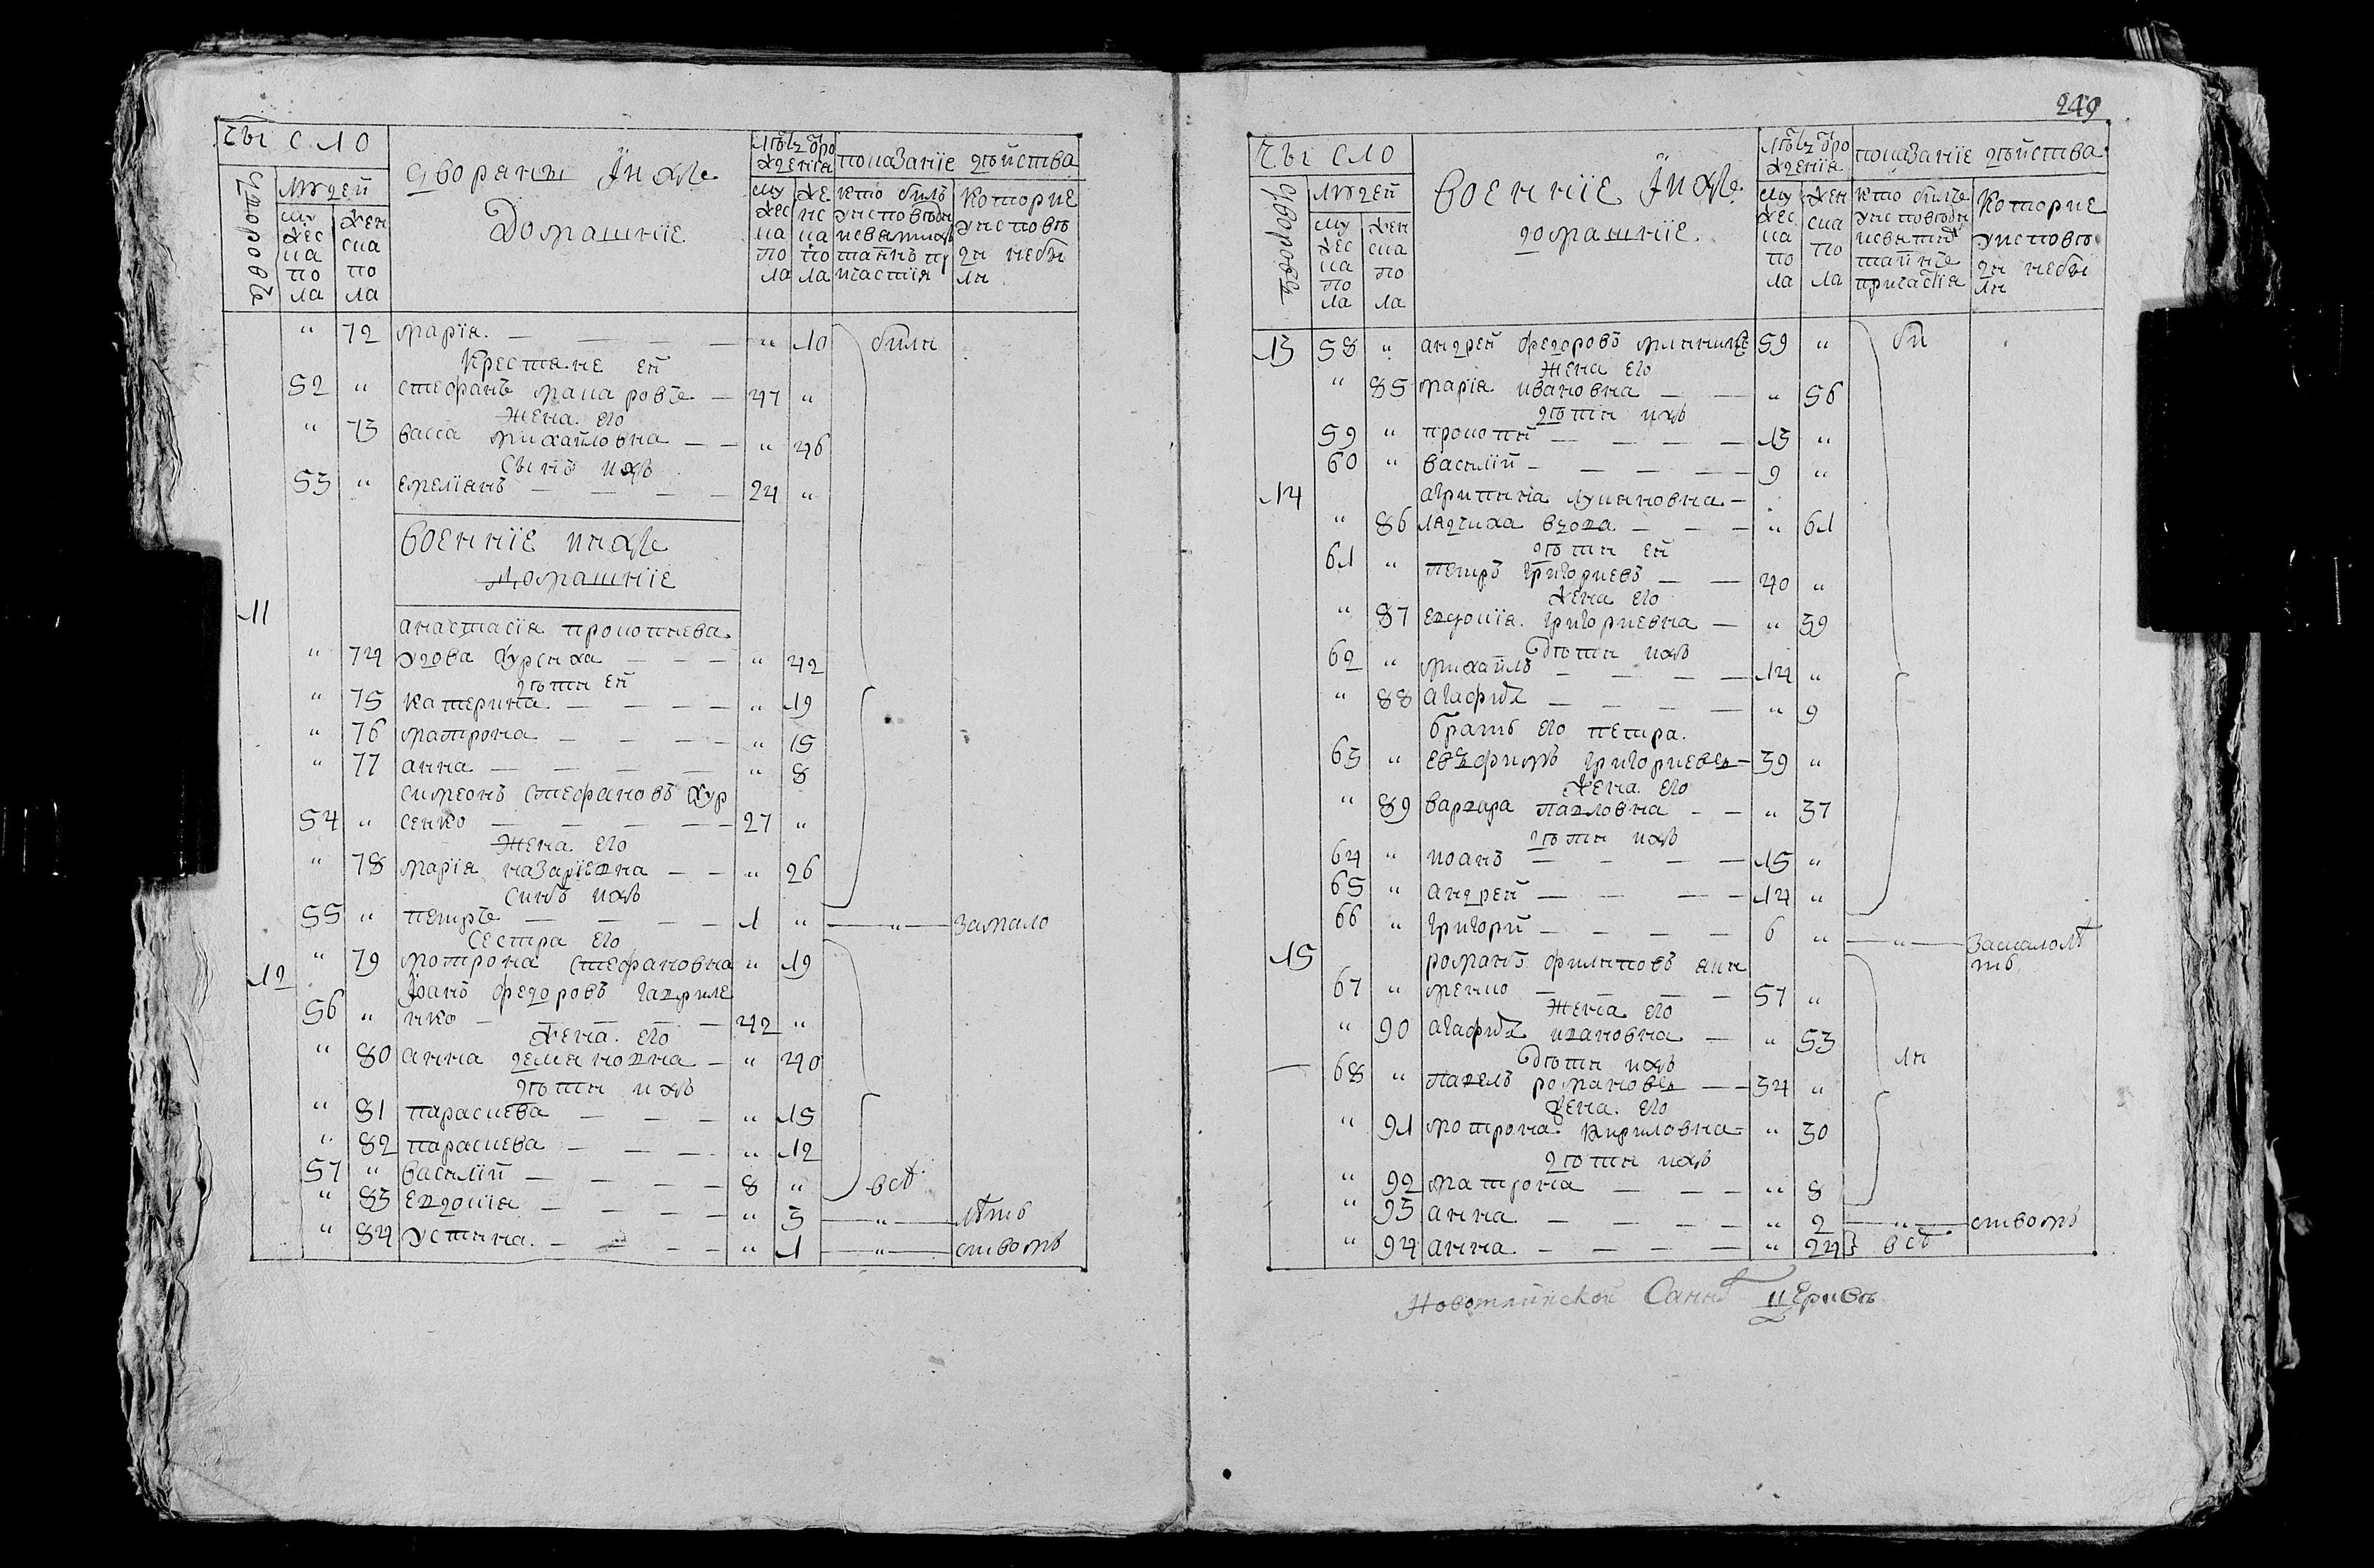 Чы сло
дворовъ
людей
мужеска пола
женска пола
дворяны їихъ
Домашніе
лѣтъ от рожденія
мужеска пола
женска пола
показаніе дѣйства
кто билъ уисповѣди исвятихъ таинъ причастія
Которие уисповѣди небыли
" 72 марїя — " 10 были
Крестяне ей
52 " стефанъ макаровъ — 47 "
Жена его
" 73 васса михайловна — — " 46
Сынъ ихъ
53 " емеліанъ — 24 "
Военніе ихъ
Домашніе
11 анастасія прокопиева
" 74 удова Хурсиха — " 42
дѣти ей
" 75 Катерина — " 19
" 76 матрона — " 15
" 77 анна — " 8
симеонъ стефановъ Хур
54 " сенко — 27 "
Жена его
" 78 марїя назаріевна — — " 26
Синъ ихъ
55 " петръ — 1 " — " — замало
Сестра его
" 79 мотрона стефановна " 19
12 Їоанъ федоровъ гавриле
56 " нко — 42 "
Жена его
" 80 анна демяновна — " 40
дѣти ихъ
" 81 параскева — " 15
" 82 параскева — " 12
57 " василій — 8 " всѣ
" 83 евдокія — " 3 — " — лѣтъ
" 84 устина — " 1 — " — ством
249
Чы сло
дворовъ
людей
мужеска пола
женска пола
военніе їихъ
домашніе
лѣтъ от рожденія
мужеска пола
женска пола
показаніе дѣйства
кто билъ уисповѣди исвятихъ таинъ причастія
Которие уисповѣди небыли
13 58 " андрей федоровъ 59 " би
Жена его
" 85 марїя ивановна — " 56
дѣти ихъ
59 " прокопій — 13 "
60 " василій — 9 "
14 агрипина лукяновна —
" 86 вдова — " 61
дѣти ей
61 " петръ григориевъ — 40 "
Жена его
" 87 евдокія григориевна — " 39
Дѣти ихъ
62 " михайлъ — 14 "
" 88 агафія — " 9
братъ его петра
63 " евфимъ григориевъ — 39 "
Жена его
" 89 варвара павловна — — " 37
дѣти ихъ
64 " иоанъ — 15 "
65 " андрей — 14 "
66 " григорй — 6 " — " — замалолѣ
тъ
15 романъ филиповъ аки
67 " менко — 57 "
Жена его
" 90 агафія ивановна — " 53
Дѣти ихъ ли
68 " павелъ романовъ — — 34 "
Жена его
" 91 мотрона кириловна — " 30
дѣти ихъ
" 92 матрона — " 8
" 93 анна — " 2 — " — ством
" 94 анна — " 24 всѣ
Новомлинской церкви